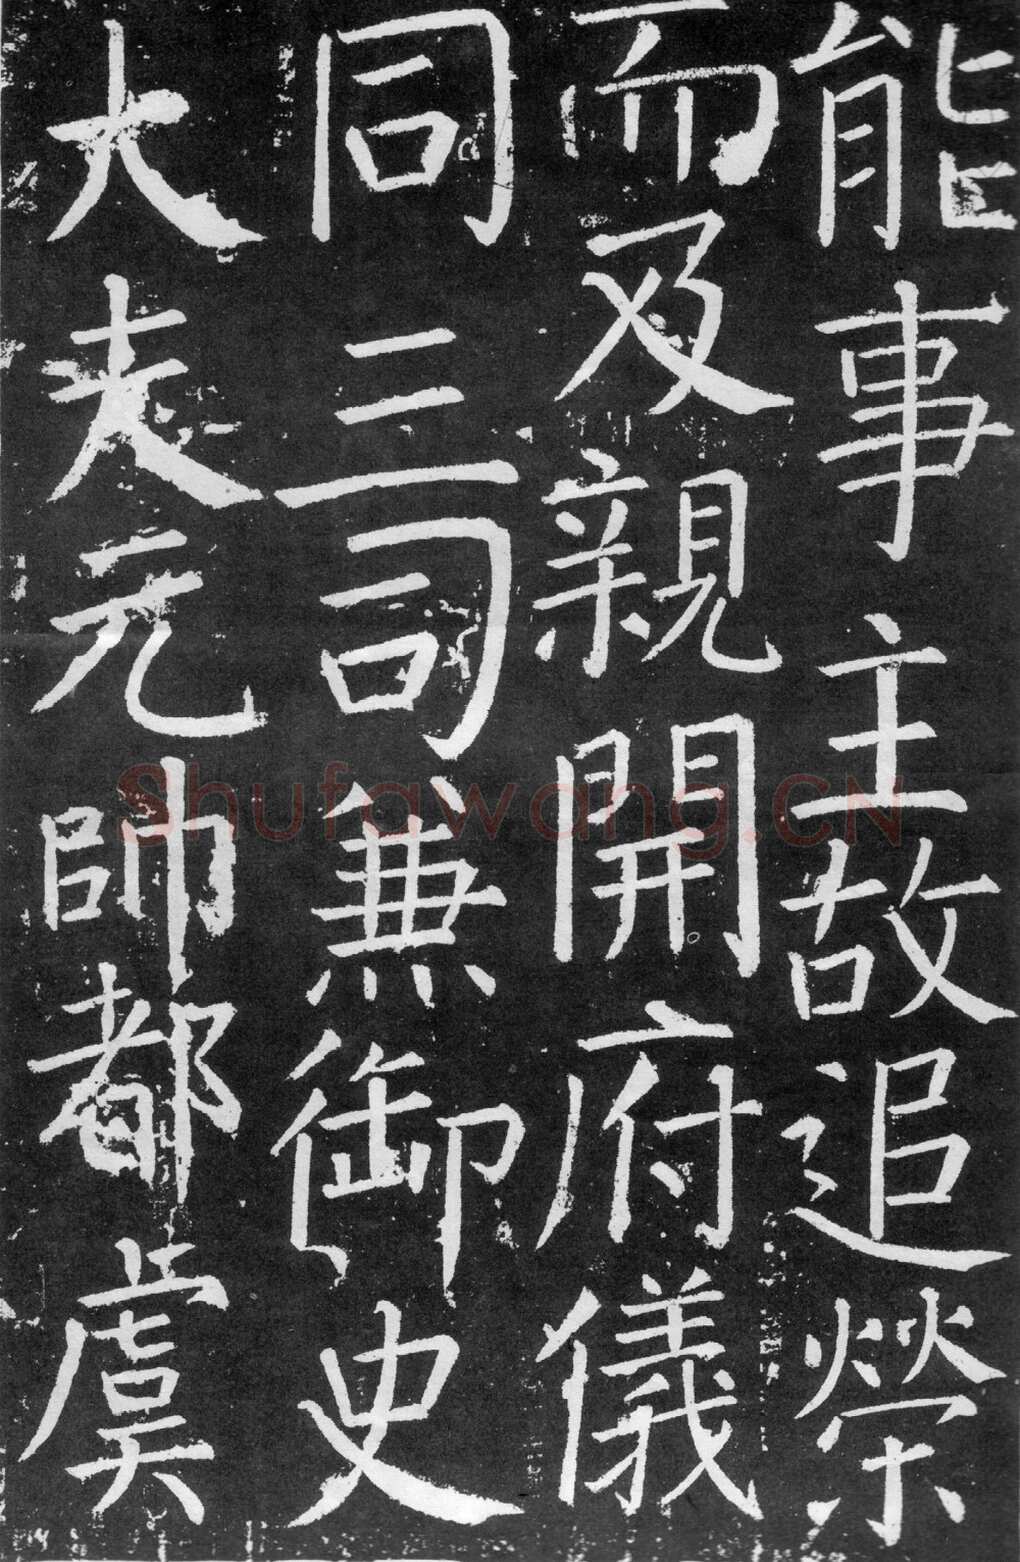 能事主故追榮
而及親開府儀
同三司兼御史
大夫元帥都虞
Shufawang.CN